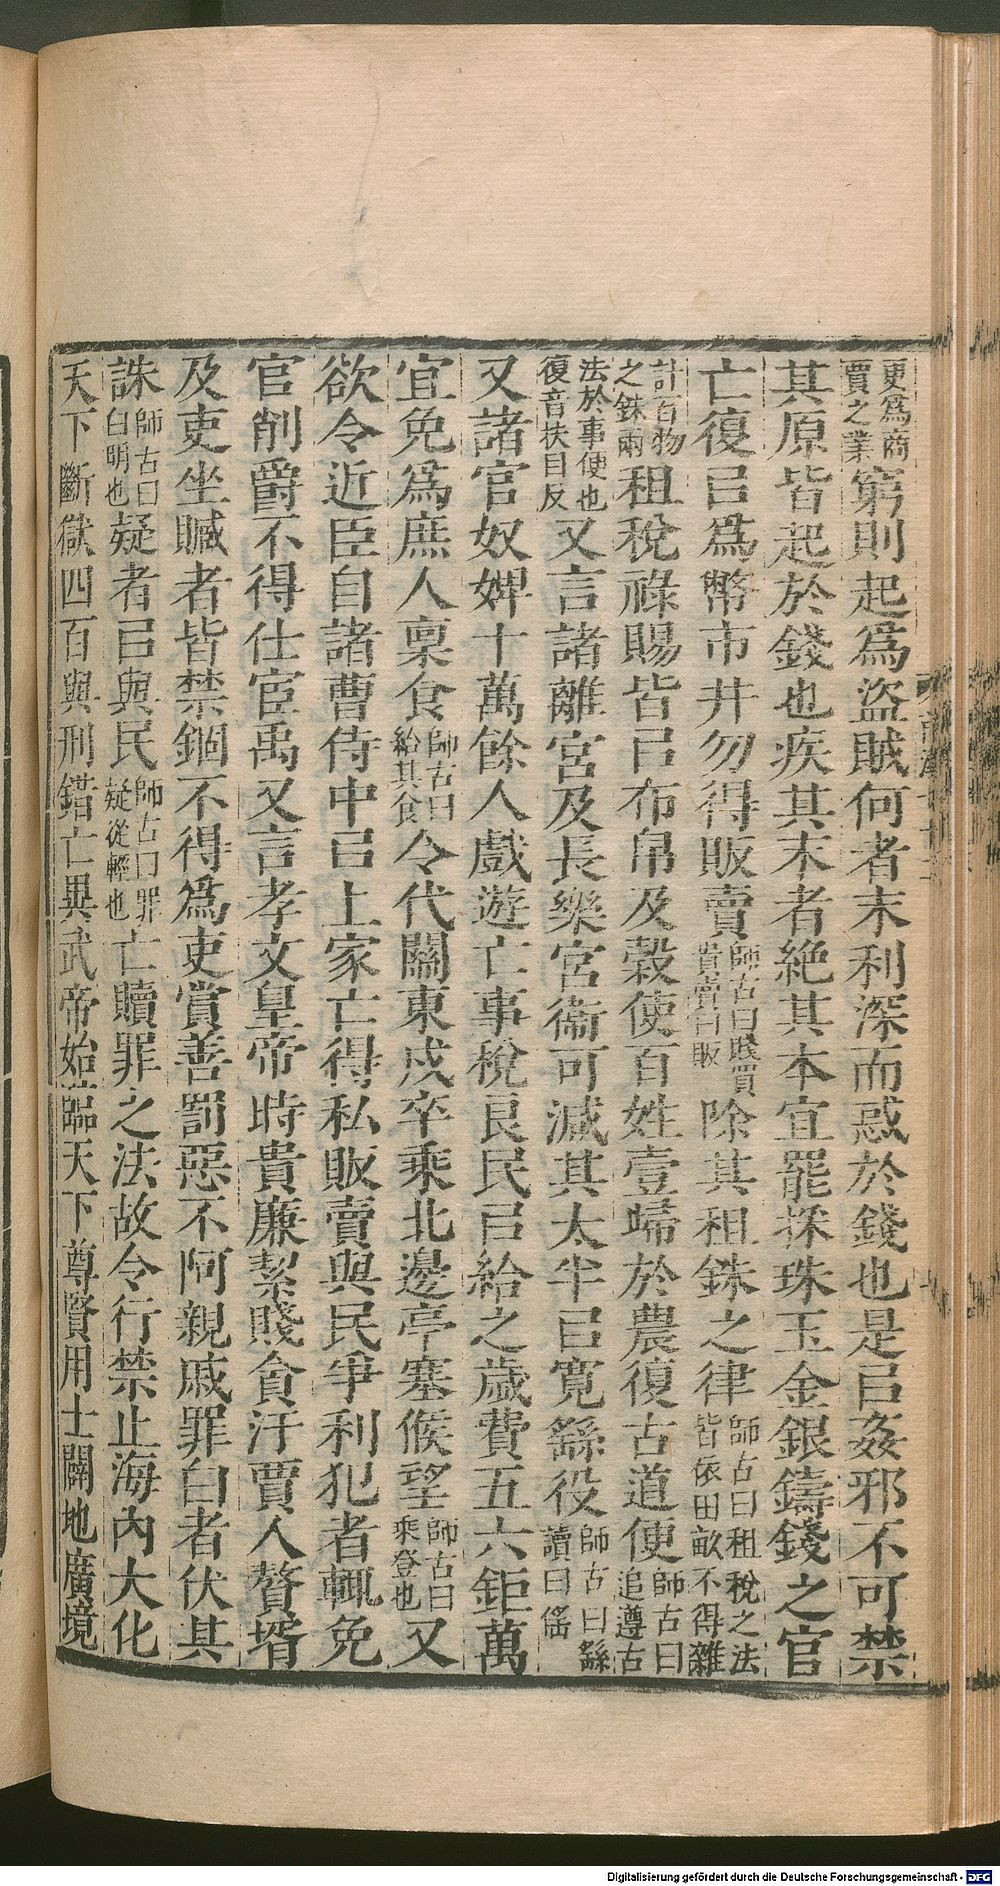 更爲商賈之業窮則起爲盜賊何者末利深而惑於錢也是㠯姦邪不可禁
其原皆起於錢也疾其末者絶其本宜罷採珠玉金銀鑄錢之官
亡復㠯爲幣市井勿得販賣師古曰賤買貴賣曰販除其租銖之律師古曰租稅之法皆依田畝不得雜
計百物之銖兩租稅祿賜皆㠯布帛及穀使百姓壹歸於農復古道便師古曰追遵古
法於事便也復音扶目反又言諸離宮及長樂宮衞可減其太半㠯寛繇役師古曰繇讀曰傜
又諸官奴婢十萬餘人戲遊亡事稅良民㠯給之歲費五六鉅萬
宜免爲庶人稟食師古曰給其食令代關東戍卒乘北邊亭塞候望師古曰乘登也又
欲令近臣自諸曹侍中㠯上家亡得私販賣與民爭利犯者輒免
官削爵不得仕宦禹又言孝文皇帝時貴廉絜賤貪汙賈人贅壻
及吏坐贓者皆禁錮不得爲吏賞善罰惡不阿親戚罪白者伏其
誅師古曰白明也疑者㠯與民師古曰罪疑從輕也亡贖罪之法故令行禁止海內大化
天下斷獄四百與刑錯亡異武帝始臨天下尊賢用士闢地廣境
Digitalisierung gefördert durch die Deutsche Forschungsgemeinschaft - DFG